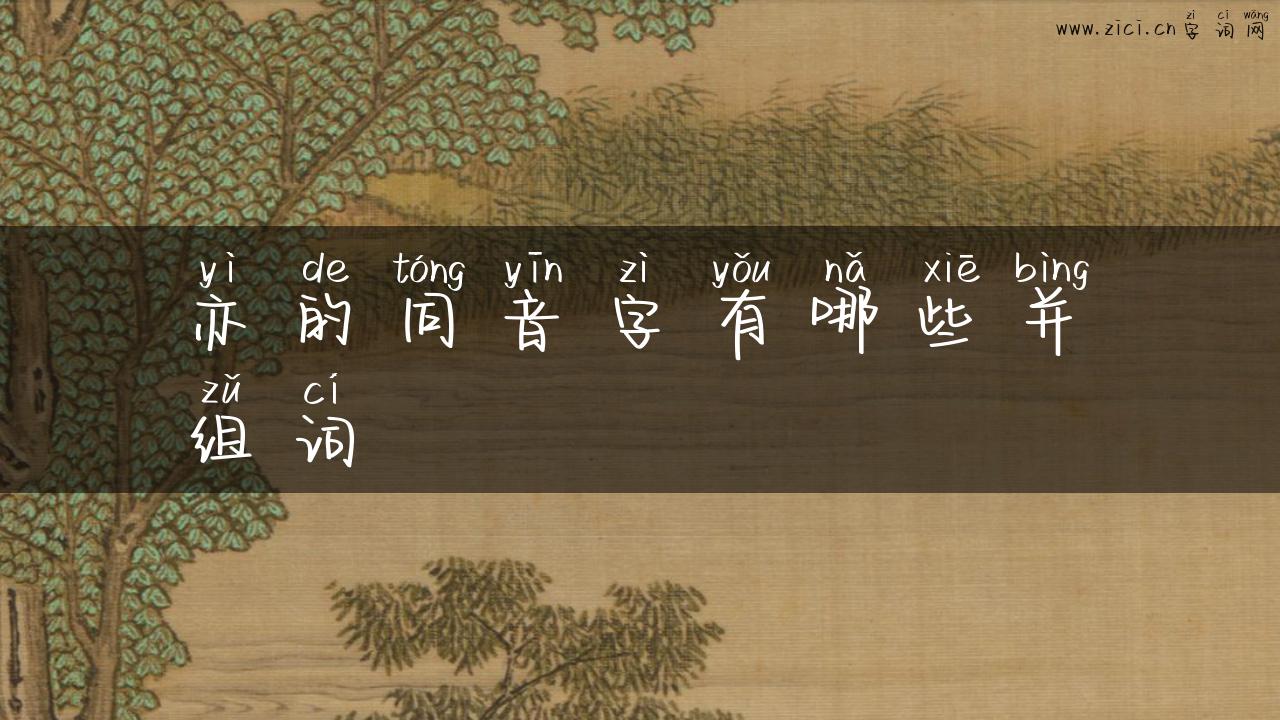 zì cí wǎng
www.zici.cn字词网
yì de tóng yīn zì yǒu nǎ xiē bìng
亦的同音字有哪些并
zǔ cí
组词